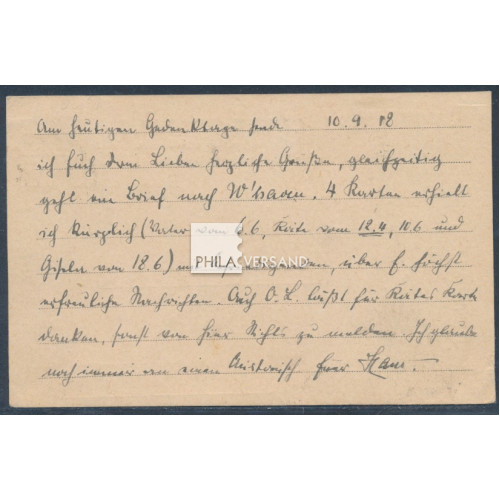 Am heutigen Gedenktage sende 10.9.18
ich Euch dem Lieben herzliche Grüße, gleichzeitig
geht ein Brief nach W'haven. 4 Karten erhielt
ich kürzlich (Vater vom 6.6, Käte vom 12.4, 10.6 und
Gisela vom 18.6) über E. höchst
PHILA VERSAND
erfreuliche Nachrichten. Auch O. L. läßt für Kätes Karte
danken, sonst von hier Nichts zu melden. Ich glaube
noch immer an einen Austausch Euer Hans.